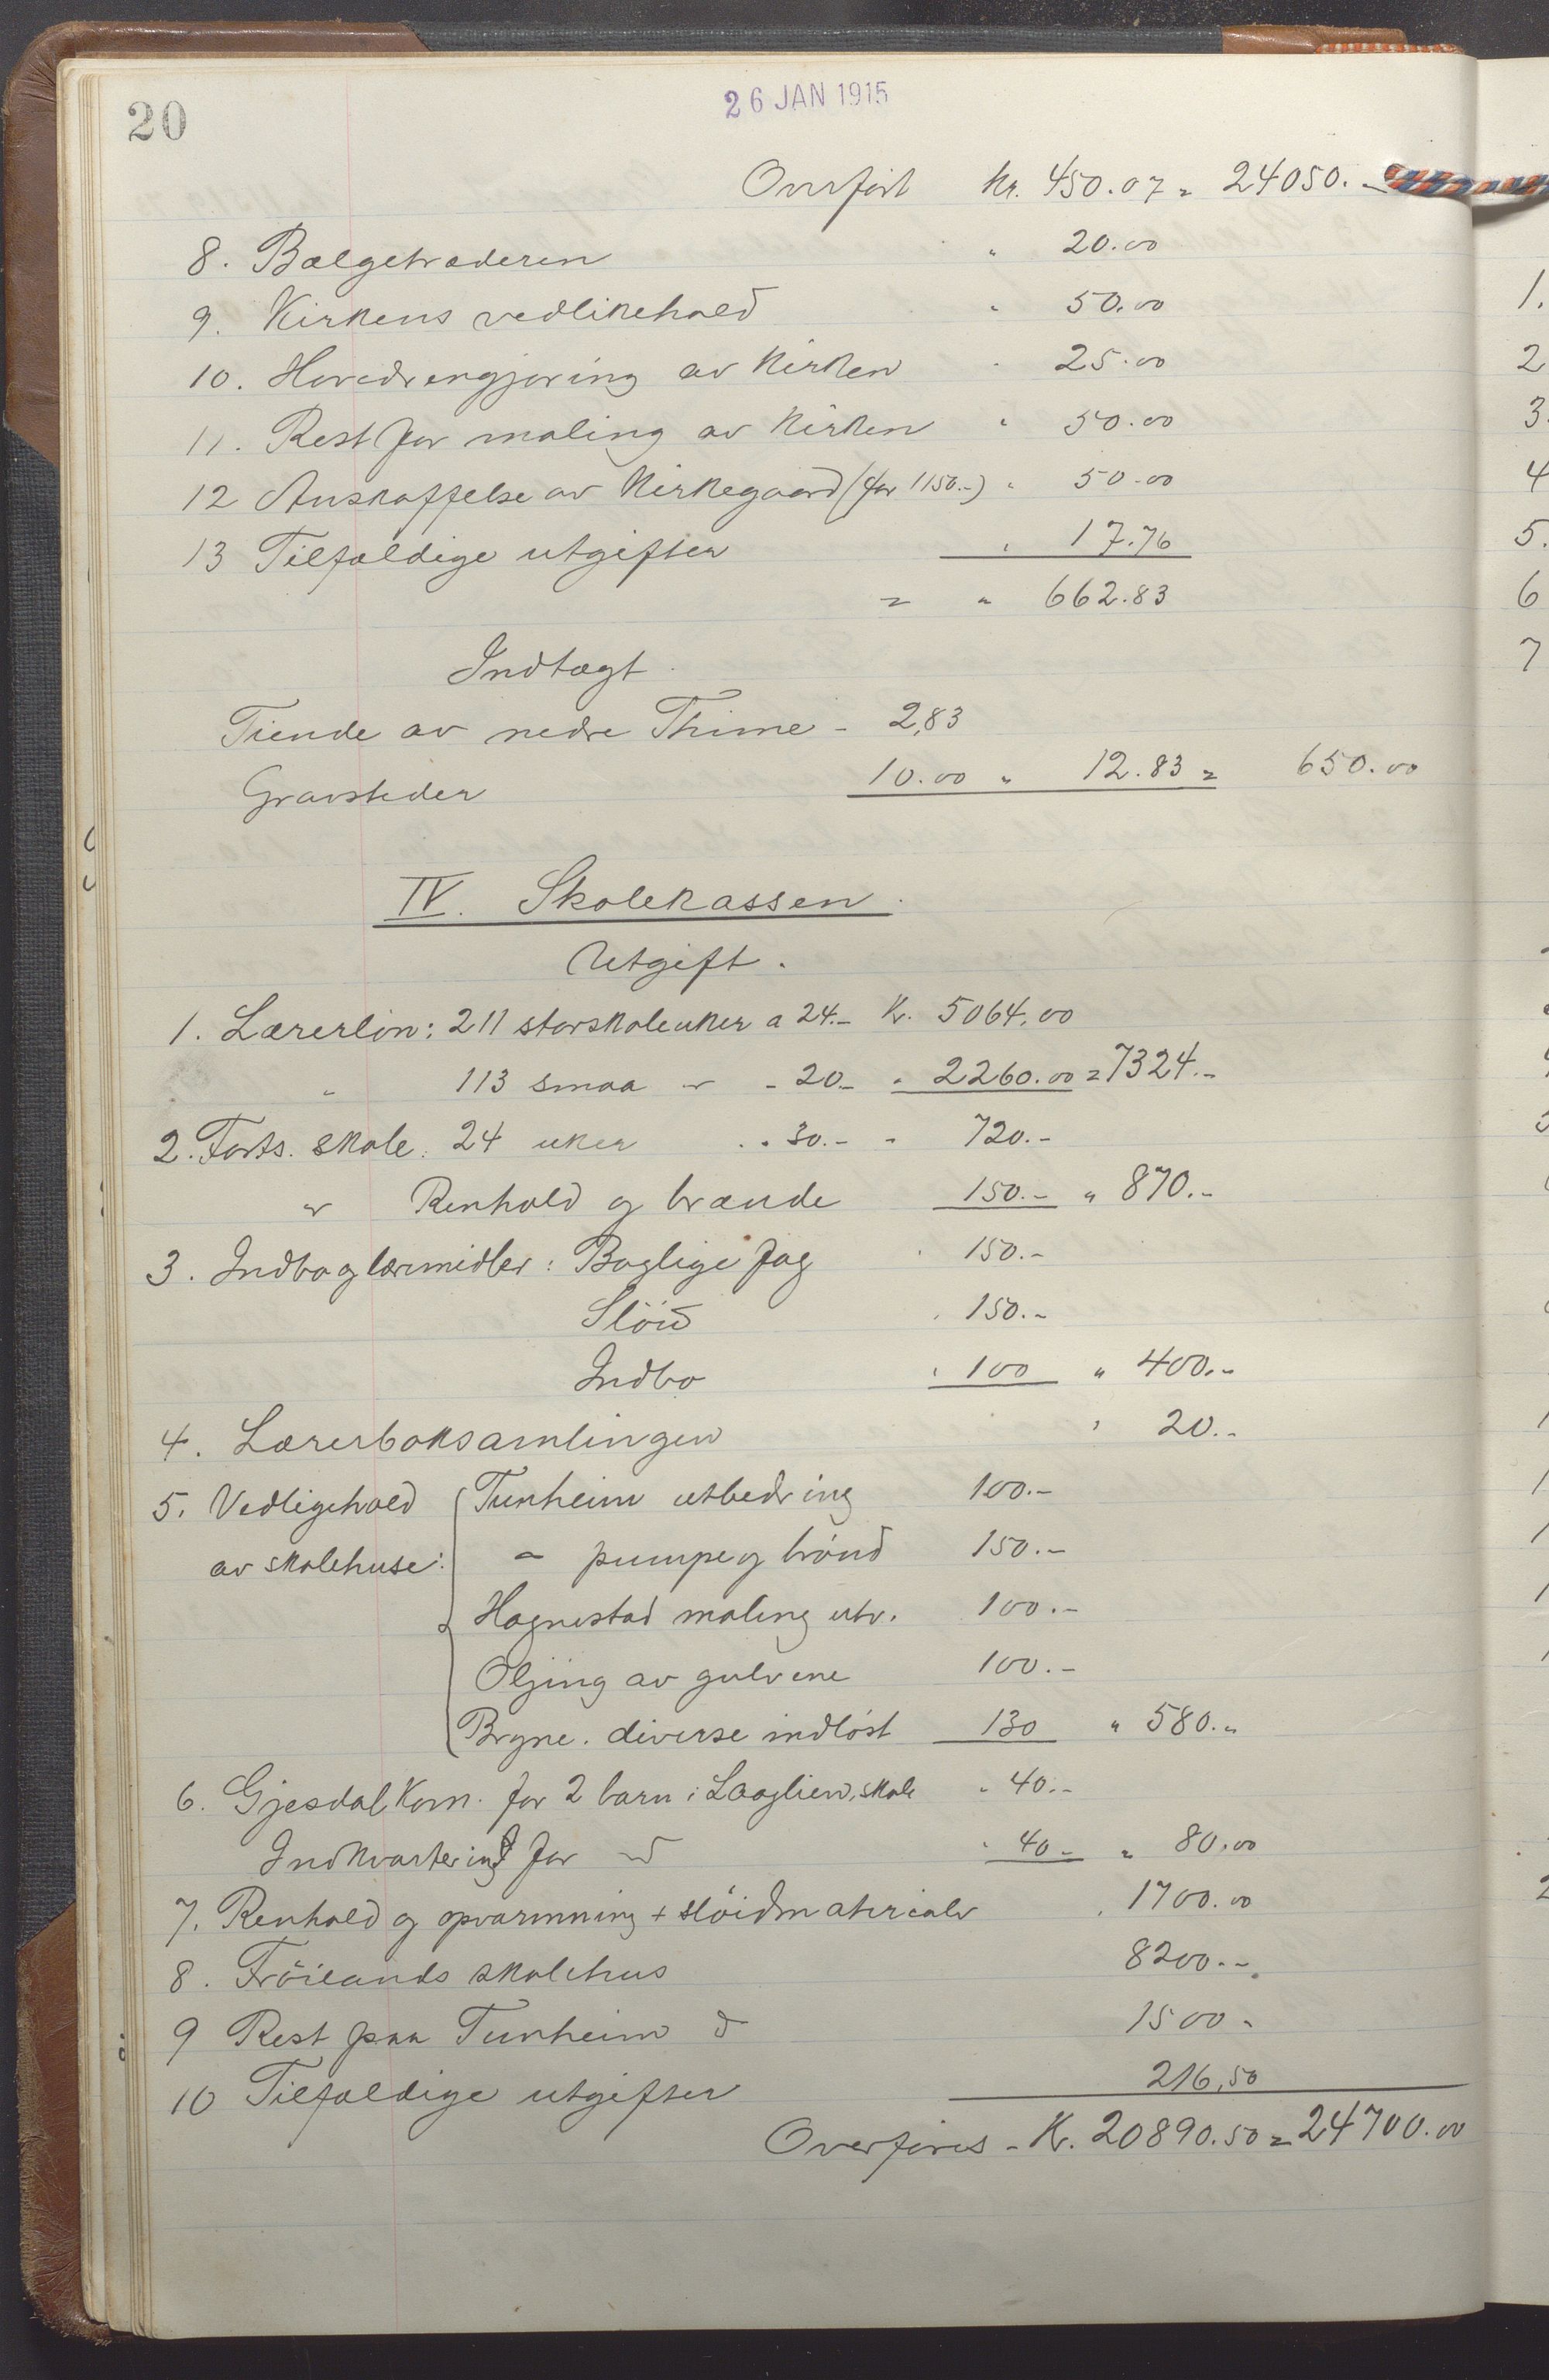 20
26 JAN 1915
Overført Kr. 450.07 = 24050.-
8. Bælgetræderen " 20.00
9. Kirkens vedlikehold " 50.00
10. Hovedrengjøring av Kirken " 25.00
11. Rest for maling av Kirken " 50.00
12 Anskaffelse av Kirkegaard (før 1150.-) " 50.00
13 Tilfældige utgifter " 17.76
= " 662.83
Indtægt.
Tiende av nedre Thime - 2,83
Gravsteder 10.00 " 12.83 = 650.00
IV. Skolekassen.
Utgift.
1. Lærerløn: 211 storskoleuker a 24.- Kr. 5064,00
" 113 smaa " - 20.- " 2260.00 = 7324.-
2. Forts. skole. 24 uker " " 30.- - 720.-
" Renhold og brænde 150.- " 870.-
3. Indbo og læremidler: Boglige fag " 150.-
Slöid " 150.-
Indbo " 100 " 400.-
4. Lærerboksamlingen " 20.-
5. Vedligehold Tunheim utbedring 100.-
av skolehuse: " pumpe og brönd 150.-
Hognestad maling utv. 100.-
Oljing av gulvene 100.-
Bryne. diverse indlöst 130 " 580.-
6. Gjesdal Kom. for 2 barn i Laaglien, skole " 40.-
Indkvartering for d " 40 - " 80.00
7. Renhold og opvarmning + slöidmaterialer " 1700.00
8. Fröilands skolehus 8200.-
9 Rest paa Tunheim d 1500 -
10 Tilfældige utgifter 216,50
Overføres - Kr. 20890.50 = 24700.00
1.
2
3.
4
5.
6
7